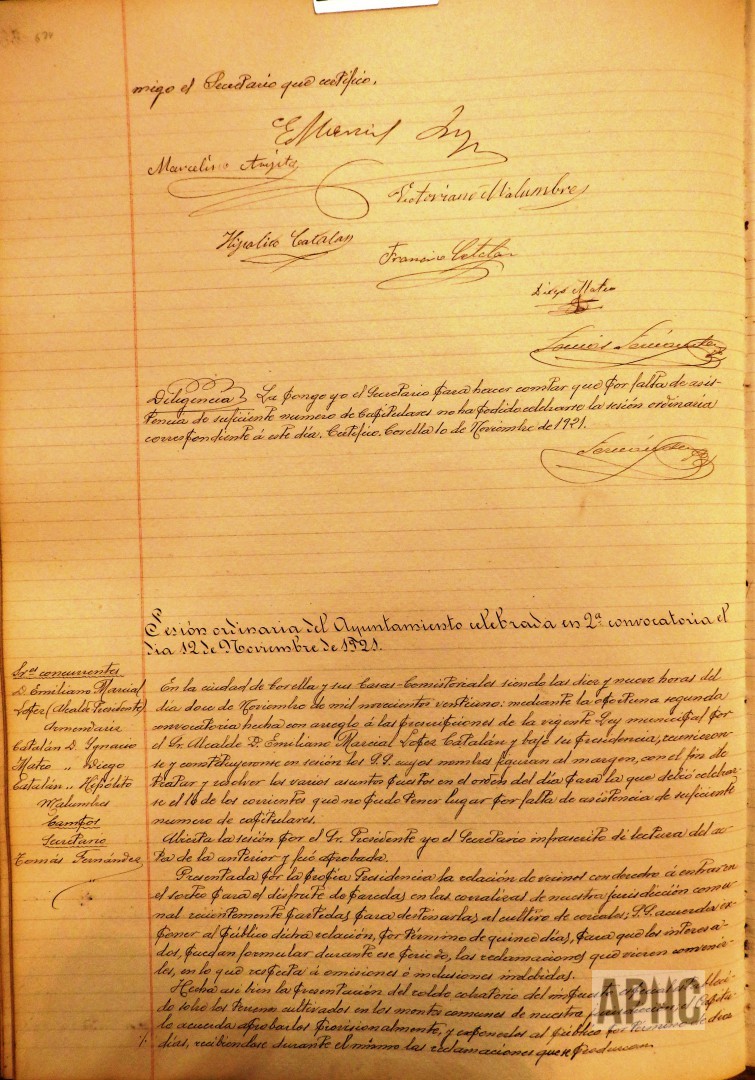 migo el Secretario que certifico.
EMarcial
Marcelino
Victoriano Malumbres
Hipolito Catalan
Francisco Catalan
Diego Mateo
Tomás Fernández
Diligencia La pongo yo el Secretario para hacer constar que por falta de asis-
tencia de suficiente numero de Capitulares no ha podido celebrarse la sesión ordinaria
correspondiente á este día. Certifico. Corella 10 de Noviembre de 1921.
Fernández
Sesión ordinaria del Ayuntamiento celebrada en 2ª convocatoria el
día 12 de Noviembre de 1921.
Sres concurrentes
D. Emiliano Marcial
Lopez (Alcalde Presidente)
Armendariz
Catalán D. Ignacio
Mateo " Diego
Catalán " Hipólito
Malumbres
Campos
Secretario
Tomás Fernández
En la ciudad de Corella y sus Casas-Consistoriales siendo las diez y nueve horas del
día doce de Noviembre de mil novecientos veintiuno: mediante la oportuna segunda
convocatoria hecha con arreglo á las prescripciones de la vigente Ley municipal por
el Sr. Alcalde D. Emiliano Marcial Lopez Catalán y bajo su presidencia, reunieron-
se y constituyeronse en sesión los S.S. cuyos nombres figuran al margen, con el fin de
tratar y resolver los varios asuntos puestos en el orden del día para la que debió celebrar-
se el 10 de los corrientes que no pudo tener lugar por falta de asistencia de suficiente
numero de capitulares.
Abierta la sesión por el Sr. Presidente yo el Secretario infrascrito di lectura del ac-
ta de la anterior y fué aprobada.
Presentada por la propia Presidencia la relación de vecinos con derecho á entrar en
el sorteo para el disfrute de parcelas en las corralizas de nuestra jurisdicción comu-
nal recientemente partidas para destinarlas al cultivo de cereales; S.S. acuerdan ex-
poner al público dicha relación, por término de quince días, para que los interesa-
dos, puedan formular durante ese periodo, las reclamaciones que vieren convenir-
les, en lo que respecta á omisiones ó inclusiones indebidas.
Hecha así bien la presentación del rolde cobratorio del impuesto especial estableci-
do sobre los terrenos cultivados en los montes comunes de nuestra jurisdicción, el Capítu-
lo acuerda aprobarlos provisionalmente, y exponerlos al público por término de diez
días, recibiendose durante el mismo las reclamaciones que se produzcan.
APHC